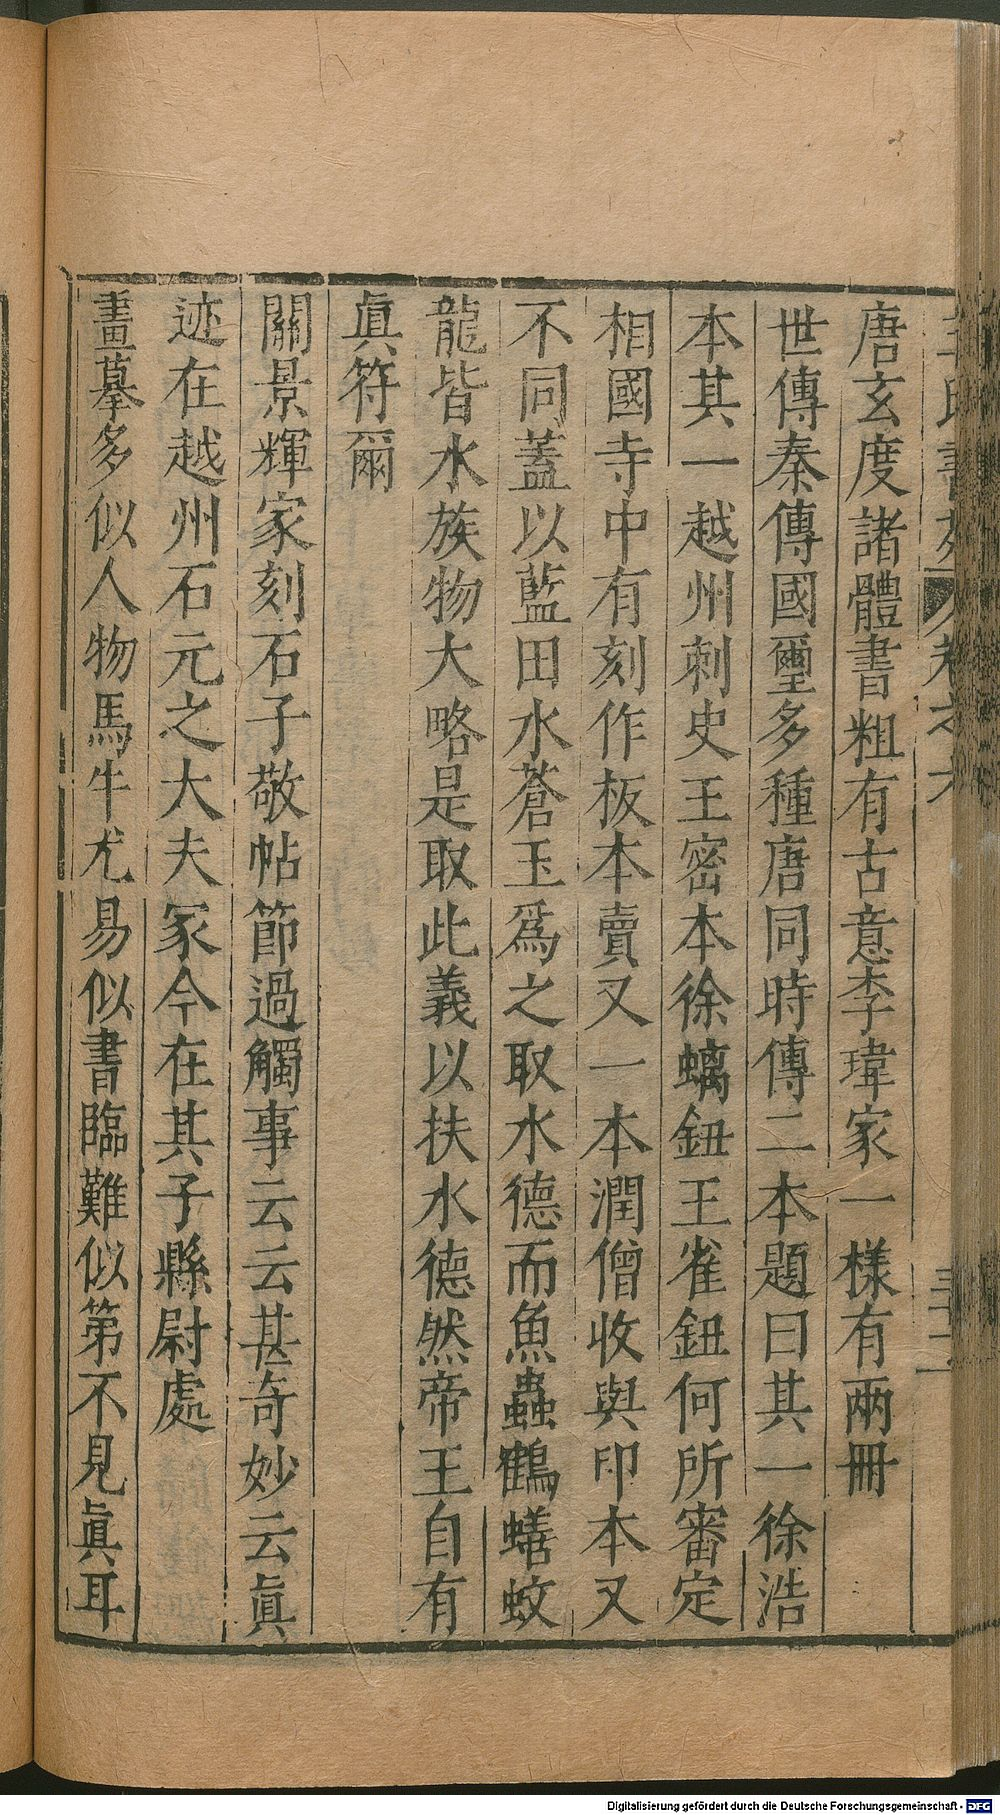 王氏書苑 卷之六 三十二
唐玄度諸體書粗有古意李瑋家一樣有兩冊
世傳秦傳國璽多種唐同時傳二本題曰其一徐浩
本其一越州刺史王密本徐螭鈕王雀鈕何所審定
相國寺中有刻作板本賣又一本潤僧收與印本又
不同蓋以藍田水蒼玉爲之取水德而魚蟲鶴蟮蛟
龍皆水族物大略是取此義以扶水德然帝王自有
眞符爾
關景輝家刻石子敬帖節過觸事云云甚奇妙云眞
迹在越州石元之大夫冢今在其子縣尉處
畫摹多似人物馬牛尤易似書臨難似第不見眞耳
Digitalisierung gefördert durch die Deutsche Forschungsgemeinschaft - DFG